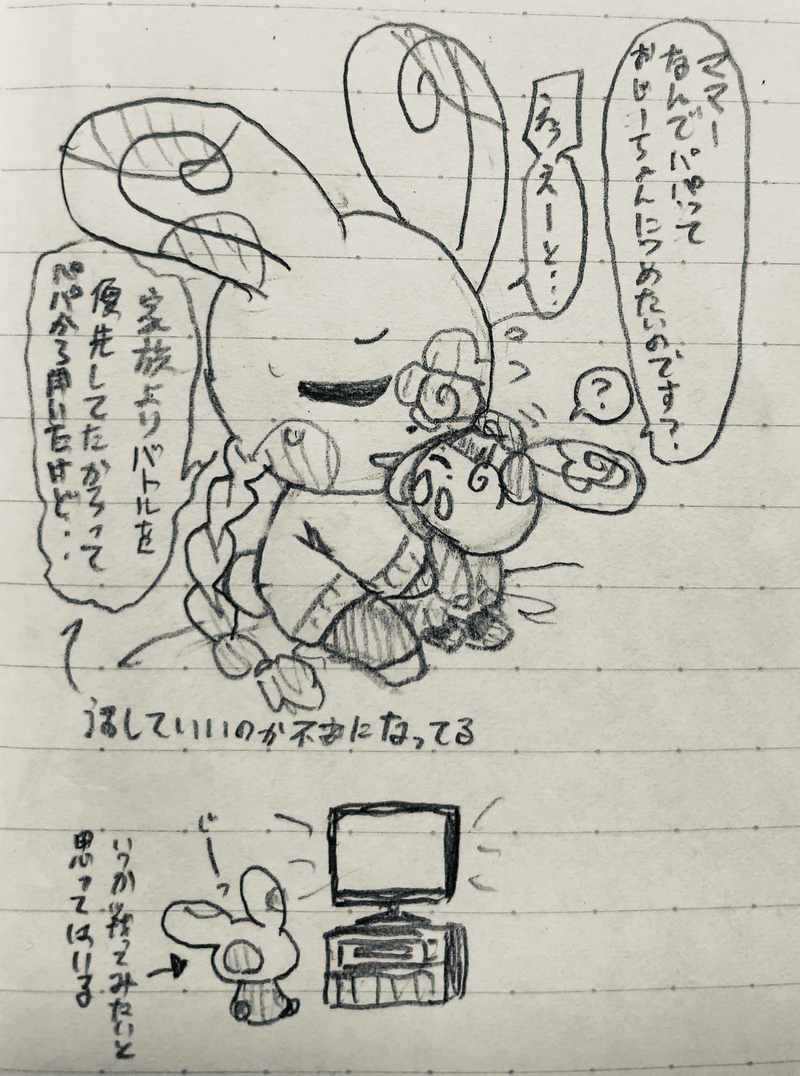 ママー
なんでパパって
おじーちゃんにつめたいのです?
えっ
えーと...
?
家族よりバトルを
優先してたからって
パパから聞いたけど...
話していいのか不安になってる
じーっ
いつか戦ってみたいと
思ってはいる